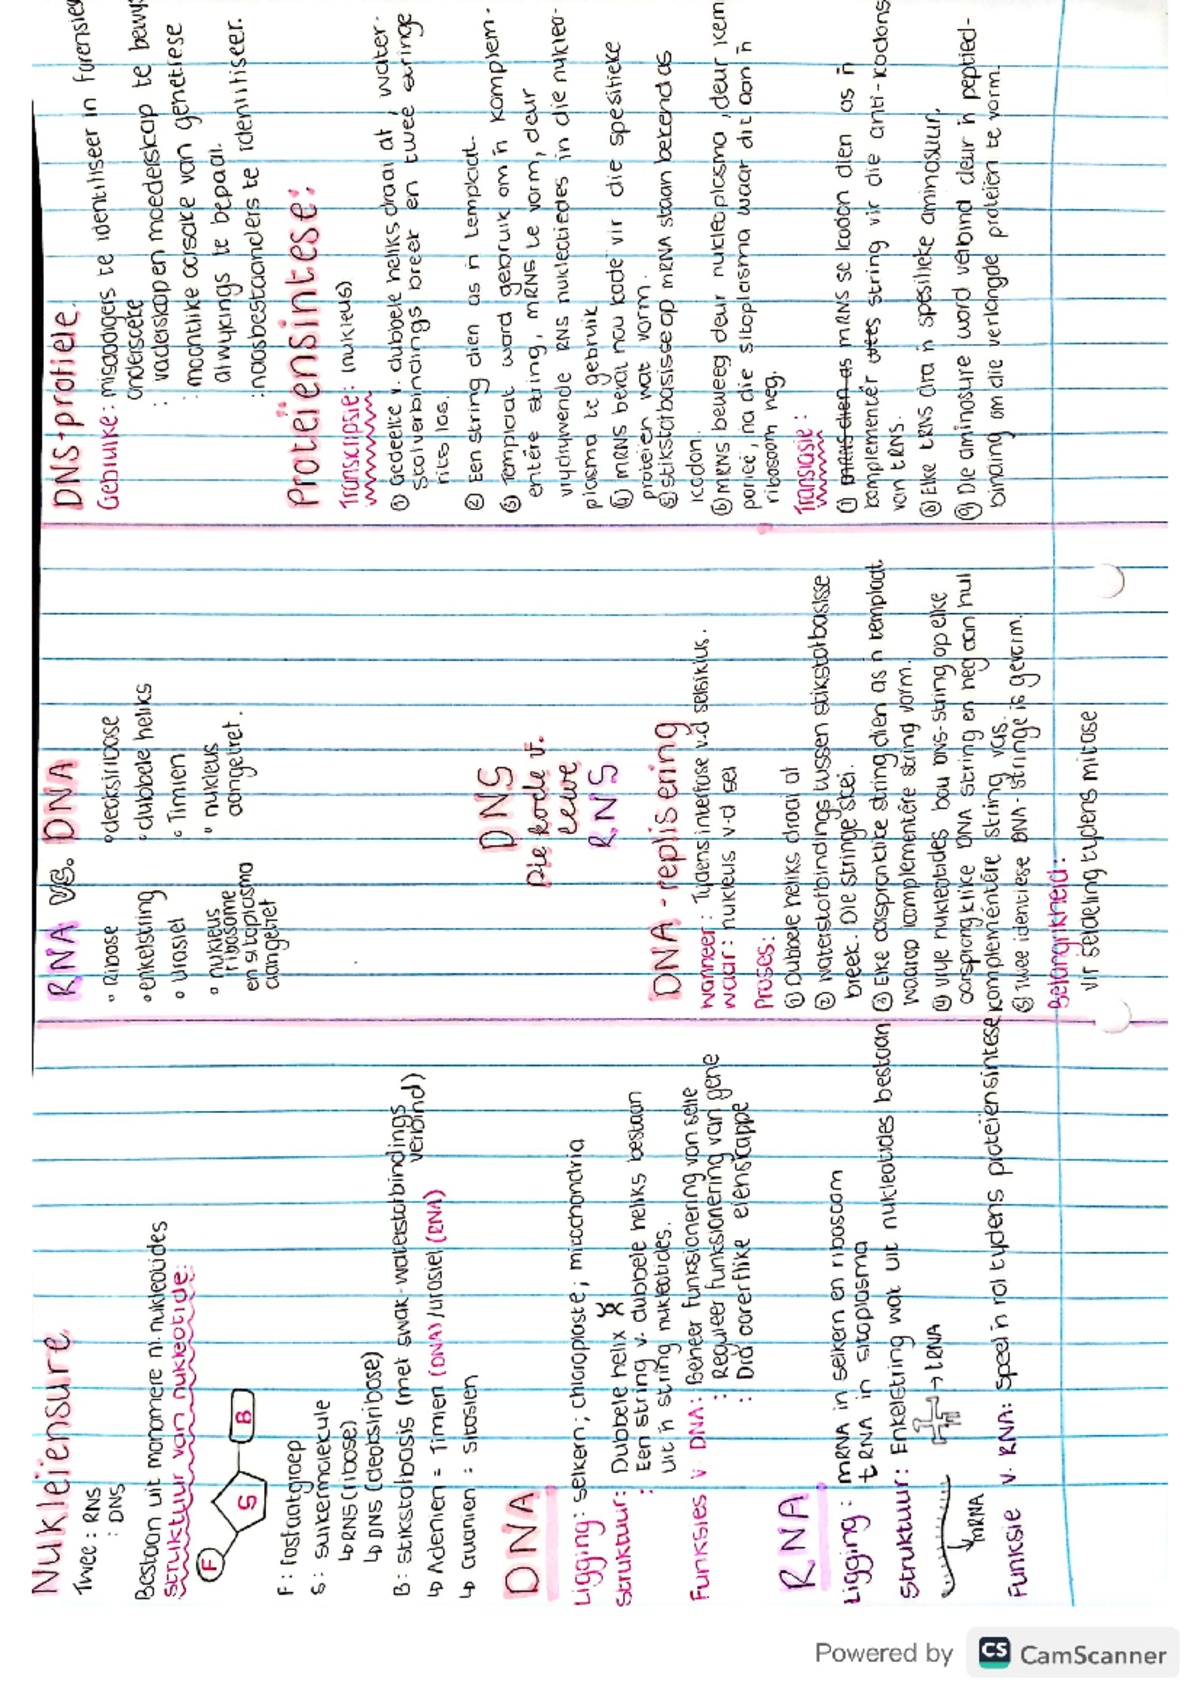 Nukleïensure
Twee : RNS
: DNS
Bestaan uit monomere nl. nukleotides
Struktuur van nukleotide:
F
S
B
F : fosfaatgroep
S : suikermolekule
↳ RNS (ribose)
↳ DNS (deoksiribose)
B : stikstofbasis (met swak waterstofbindings verbind)
↳ Adenien = Timien (DNA) / urasiel (RNA)
↳ Guanien : sitosien
DNA
Ligging : selkern ; chloroplaste ; mitochondria
Struktuur : Dubbele helix
: Een string v. dubbele heliks bestaan
uit 'n string nukleotides.
Funksies v DNA : Beheer funksionering van selle
: Reguleer funksionering van gene
: Dra oorerflike eienskappe
RNA
Ligging : mRNA in selkern en ribosoom
tRNA in sitoplasma
Struktuur : Enkelstring wat uit nukleotides bestaan
mRNA
→ tRNA
Funksie v. RNA : Speel 'n rol tydens proteïensintese
RNA vs. DNA
° Ribose
° enkelstring
° urasiel
° nukleus
ribosome
en sitoplasma
aangetref
° deoksiribose
° dubbele heliks
° Timien
° nukleus
aangetref.
DNS
Die kode v.
lewe
RNS
DNA - replisering
wanneer : Tydens interfase v.d selsiklus.
waar : nukleus v.d sel
Proses:
① Dubbele heliks draai af
② waterstofbindings tussen stikstofbasisse
breek. Die stringe skei.
③ Elke oorspronklike string dien as 'n templaat
waarop komplementêre string vorm.
④ vrye nukleotides bou DNS-string op elke
oorspronklike DNA string en heg aan hul
komplementêre string vas.
⑤ Twee identiese DNA-stringe is gevorm.
Belangrikheid:
vir seldeling tydens mitose
DNS-profiele.
Gebruike : misdadigers te identifiseer in forensiese
ondersoeke
: vaderskap en moederskap te bewys
: moontlike oorsake van genetiese
afwykings te bepaal.
: naasbestaanders te identifiseer.
Proteïensintese:
Transkripsie : (nukleus)
① Gedeelte v. dubbele heliks draai af, water-
stofverbindings breek en twee stringe
rits los.
② Een string dien as 'n templaat.
③ Templaat word gebruik om 'n komplem-
entêre string, mRNS te vorm, deur
vrydrywende RNS nukleotiedes in die nukleo-
plasma te gebruik
④ mRNS bevat nou kode vir die spesifieke
proteïen wat vorm.
⑤ Stikstofbasisse op mRNA staan bekend as
kodon.
⑥ mRNS beweeg deur nukleoplasma, deur kern
porieë, na die sitoplasma waar dit aan 'n
ribosoom heg.
Translasie :
① mRNS dien as mRNS se kodon dien as 'n
komplementêr string vir die anti-kodons
van tRNS.
⑧ Elke tRNS dra 'n spesifieke aminosuur.
⑨ Die aminosure word verbind deur 'n peptied-
binding om die verlangde proteïen te vorm.
Powered by CS CamScanner